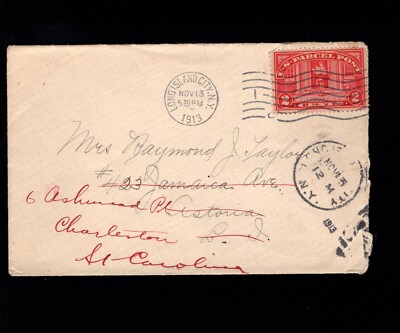 LONG ISLAND CITY, N.Y.
NOV 13
5 30 PM
1913
U.S. PARCEL POST
2 2
CENTS
Mrs Raymond J Taylor
#423 Jamaica Ave
6 Ashwood Pl Astoria
Charleston L. I
St Carolina
NOV 15
12 M
N.Y.
1913